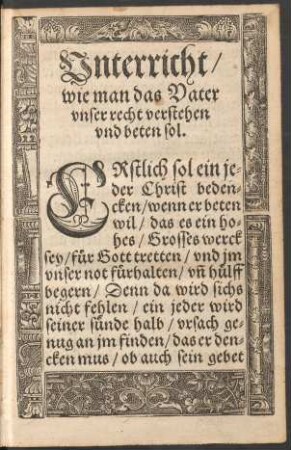 Vnterricht /
wie man das Vater
vnser recht verstehen
vnd beten sol.
ERstlich sol ein je-
der Christ beden-
cken / wenn er beten
wil / das es ein ho-
hes / Grosses werck
sey / für Gott tretten / vnd jm
vnser not fürhalten / vñ hülff
begern / Denn da wird sichs
nicht fehlen / ein jeder wird
seiner sünde halb / vrsach ge-
nug an jm finden / das er den-
cken mus / ob auch sein gebet